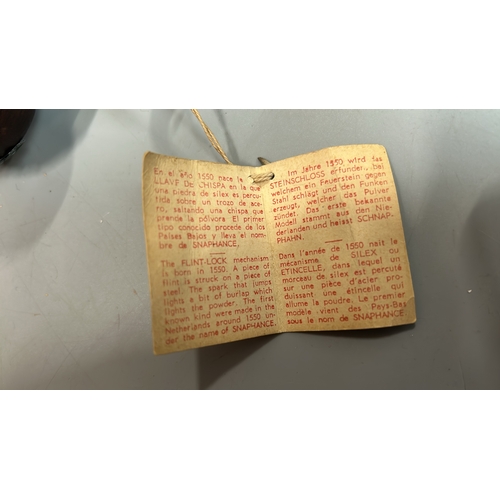 En el año 1550 nace la
LLAVE DE CHISPA en la que
una piedra de silex es percu-
tida sobre un trozo de ace-
ro, saltando una chispa que
prende la pólvora El primer
tipo conocido procede de los
Países Bajos y lleva el nom-
bre de SNAPHANCE,
The FLINT-LOCK mechanism
is born in 1550. A piece of
flint is struck on a piece of
steel. The spark that jumps
lights a bit of burlap which
lights the powder. The first
known kind were made in the
Netherlands around 1550 un-
der the name of SNAPHANCE.
Im Jahre 1550 wird das
STEINSCHLOSS erfunden., bei
welchem ein Feuerstein gegen
Stahl schlägt und den Funken
erzeugt, welcher das Pulver
zündet. Das erste bekannte
Modell stammt aus den Nie-
derlanden und heisst SCHNAP-
PHAHN.
Dans l'année de 1550 nait le
mécanisme de SILEX ou
ETINCELLE, dans lequel un
morceau de silex est percuté
sur une pièce d'acier pro-
duissant une étincelle qui
allume la poudre. Le premier
modèle vient des Pays-Bas
sous le nom de SNAPHANCE.